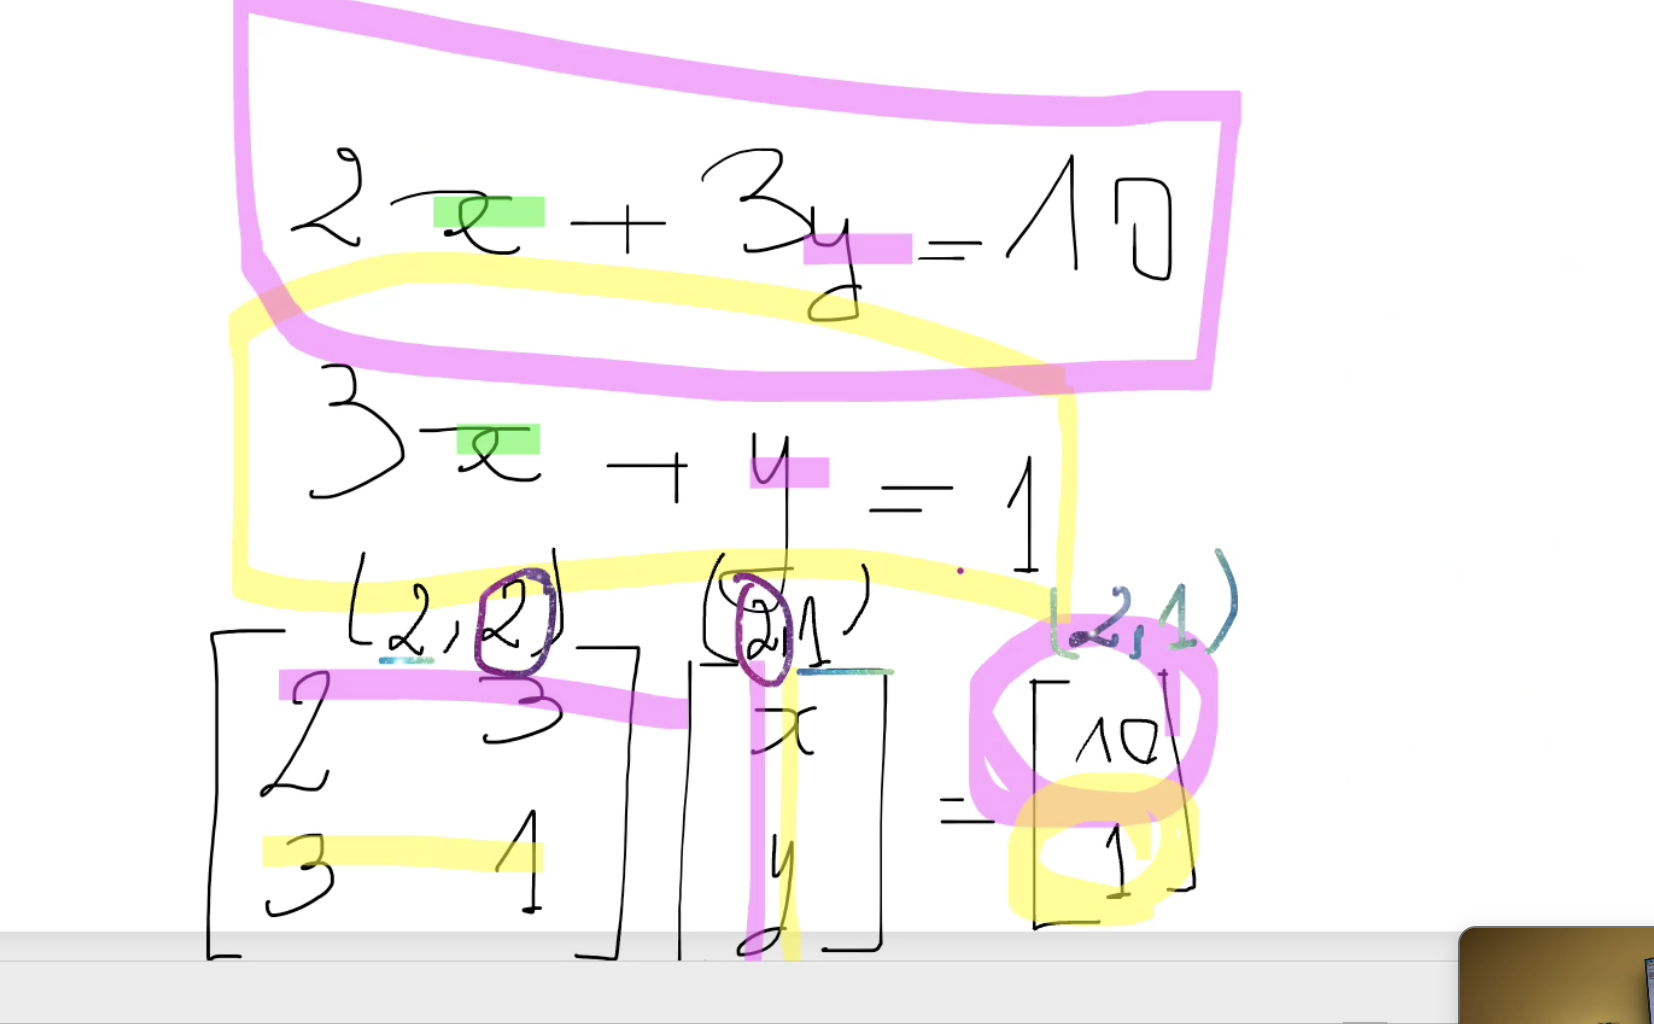 2x + 3y = 10
3x + y = 1
(2, 2) (2, 1) (2, 1)
[2 3 [x = [10
3 1] y] 1]